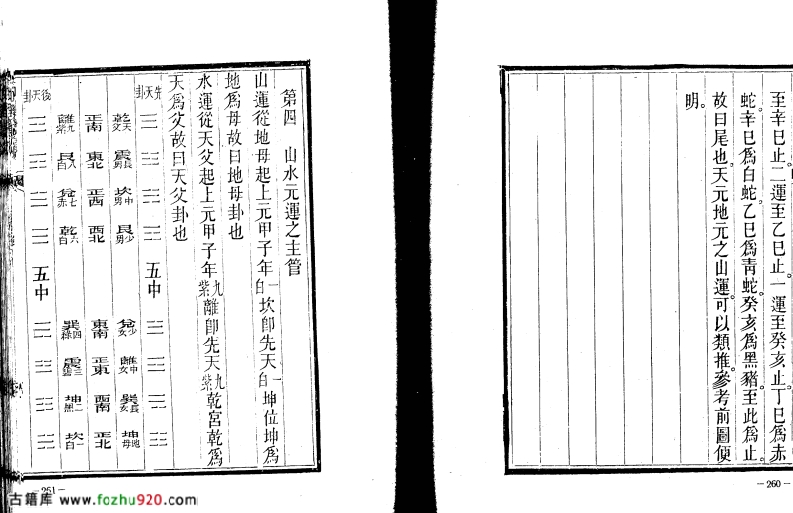 至辛巳止。二運至乙巳止。一運至癸亥止。丁巳爲赤
蛇。辛巳爲白蛇。乙巳爲靑蛇。癸亥爲黑豬。至此爲止。
故曰尾也。天元地元之山運。可以類推。參考前圖便
明。
－260－
第四 山水元運之主管
山運從地母起上元甲子年一白坎卽先天一白坤位坤爲
地爲母故曰地母卦也
水運從天父起上元甲子年九紫離卽先天九紫乾宮乾爲
天爲父故曰天父卦也
先天卦 ☰ ☳ ☵ ☶ 五中 ☱ ☲ ☴ ☷
乾天父 震長男 坎中男 艮少男 兌少女 離中女 巽長女 坤地母
正南 東北 正西 西北 東南 正東 西南 正北
離九紫 艮八白 兌七赤 乾六白 巽四綠 震三碧 坤二黑 坎一白
後天卦 五中
－261－
古籍库 www.fozhu920.com